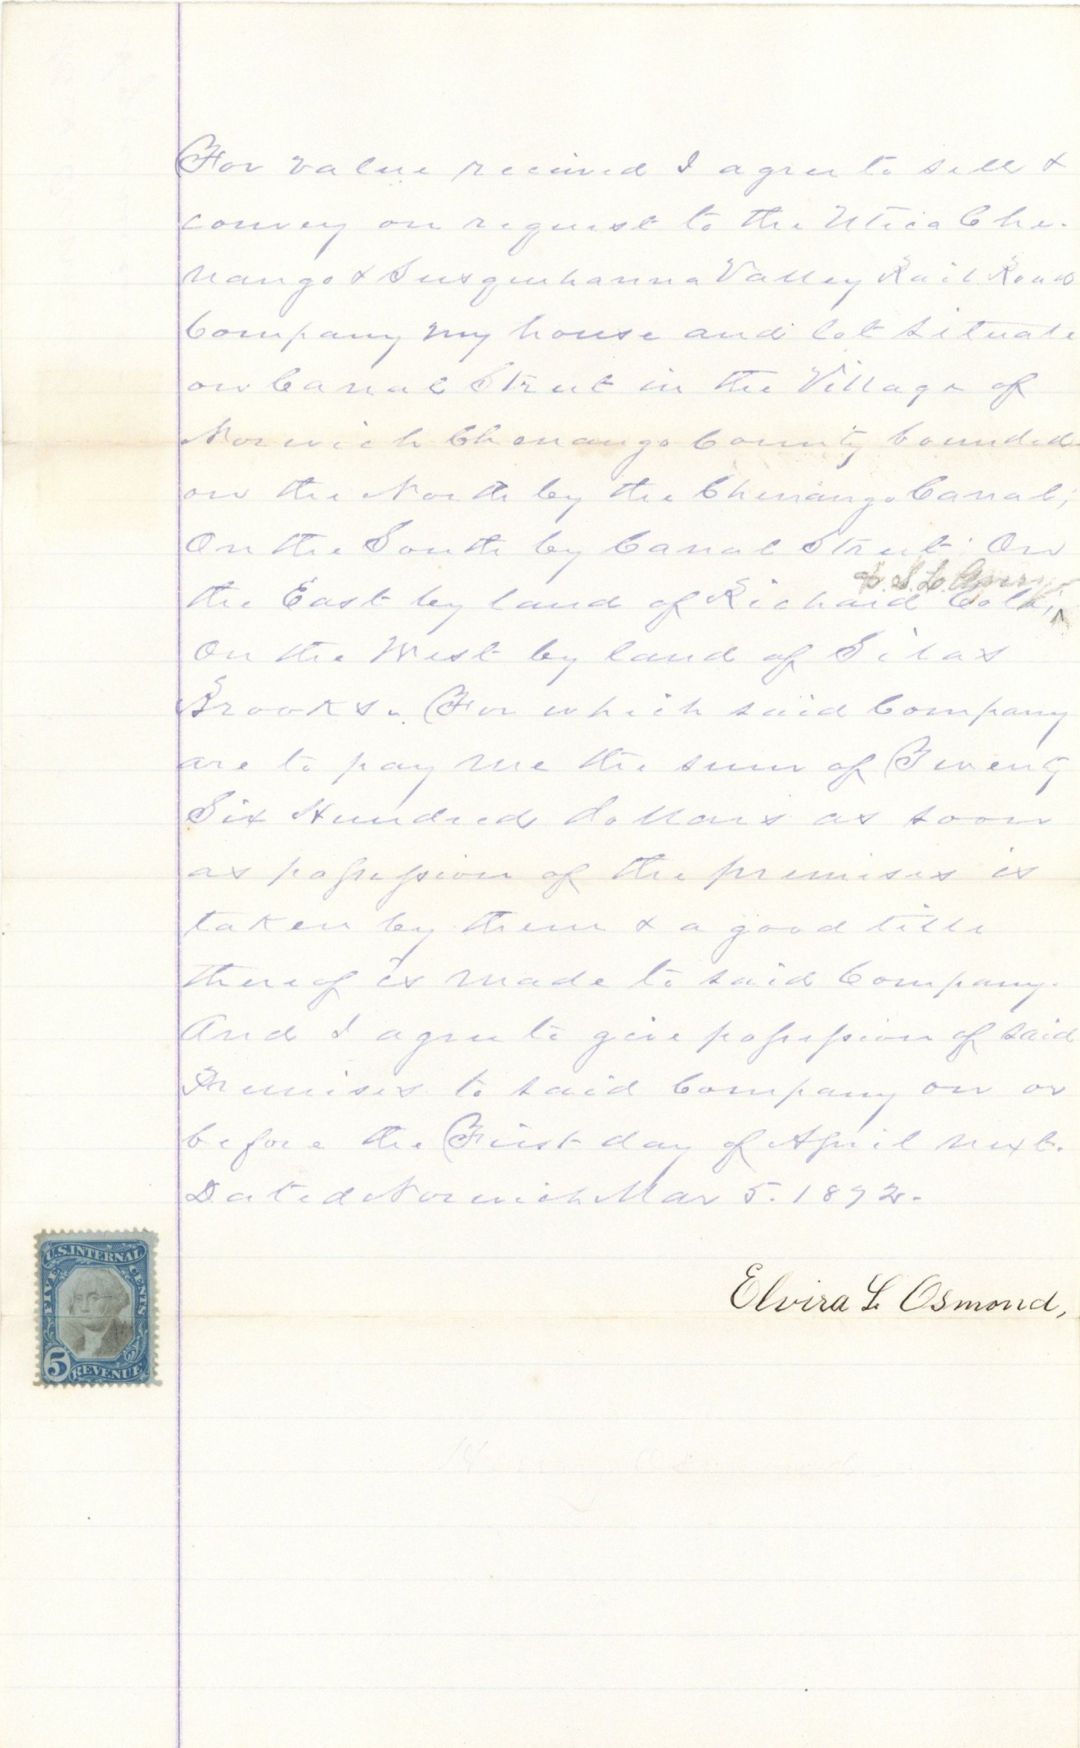 For value received I agree to sell &
convey on request to the Utica Che-
nango & Susquehanna Valley Rail Road
Company my house and lot situate
on Canal Street in the Village of
Norwich Chenango County bounded
on the North by the Chenango Canal;
On the South by Canal Street: On
& S. L.
the East by land of Richard Cole;
On the West by land of Silas
Brooks. For which said Company
are to pay me the sum of Twenty
Six Hundred dollars as soon
as possession of the premises is
taken by them & a good title
thereof is made to said Company.
And I agree to give possession of said
Premises to said Company on or
before the First day of April next.
Dated Norwich Mar 5. 1872.
U.S. INTERNAL
FIVE CENTS
5 REVENUE
Elvira L. Osmond,
Osmond